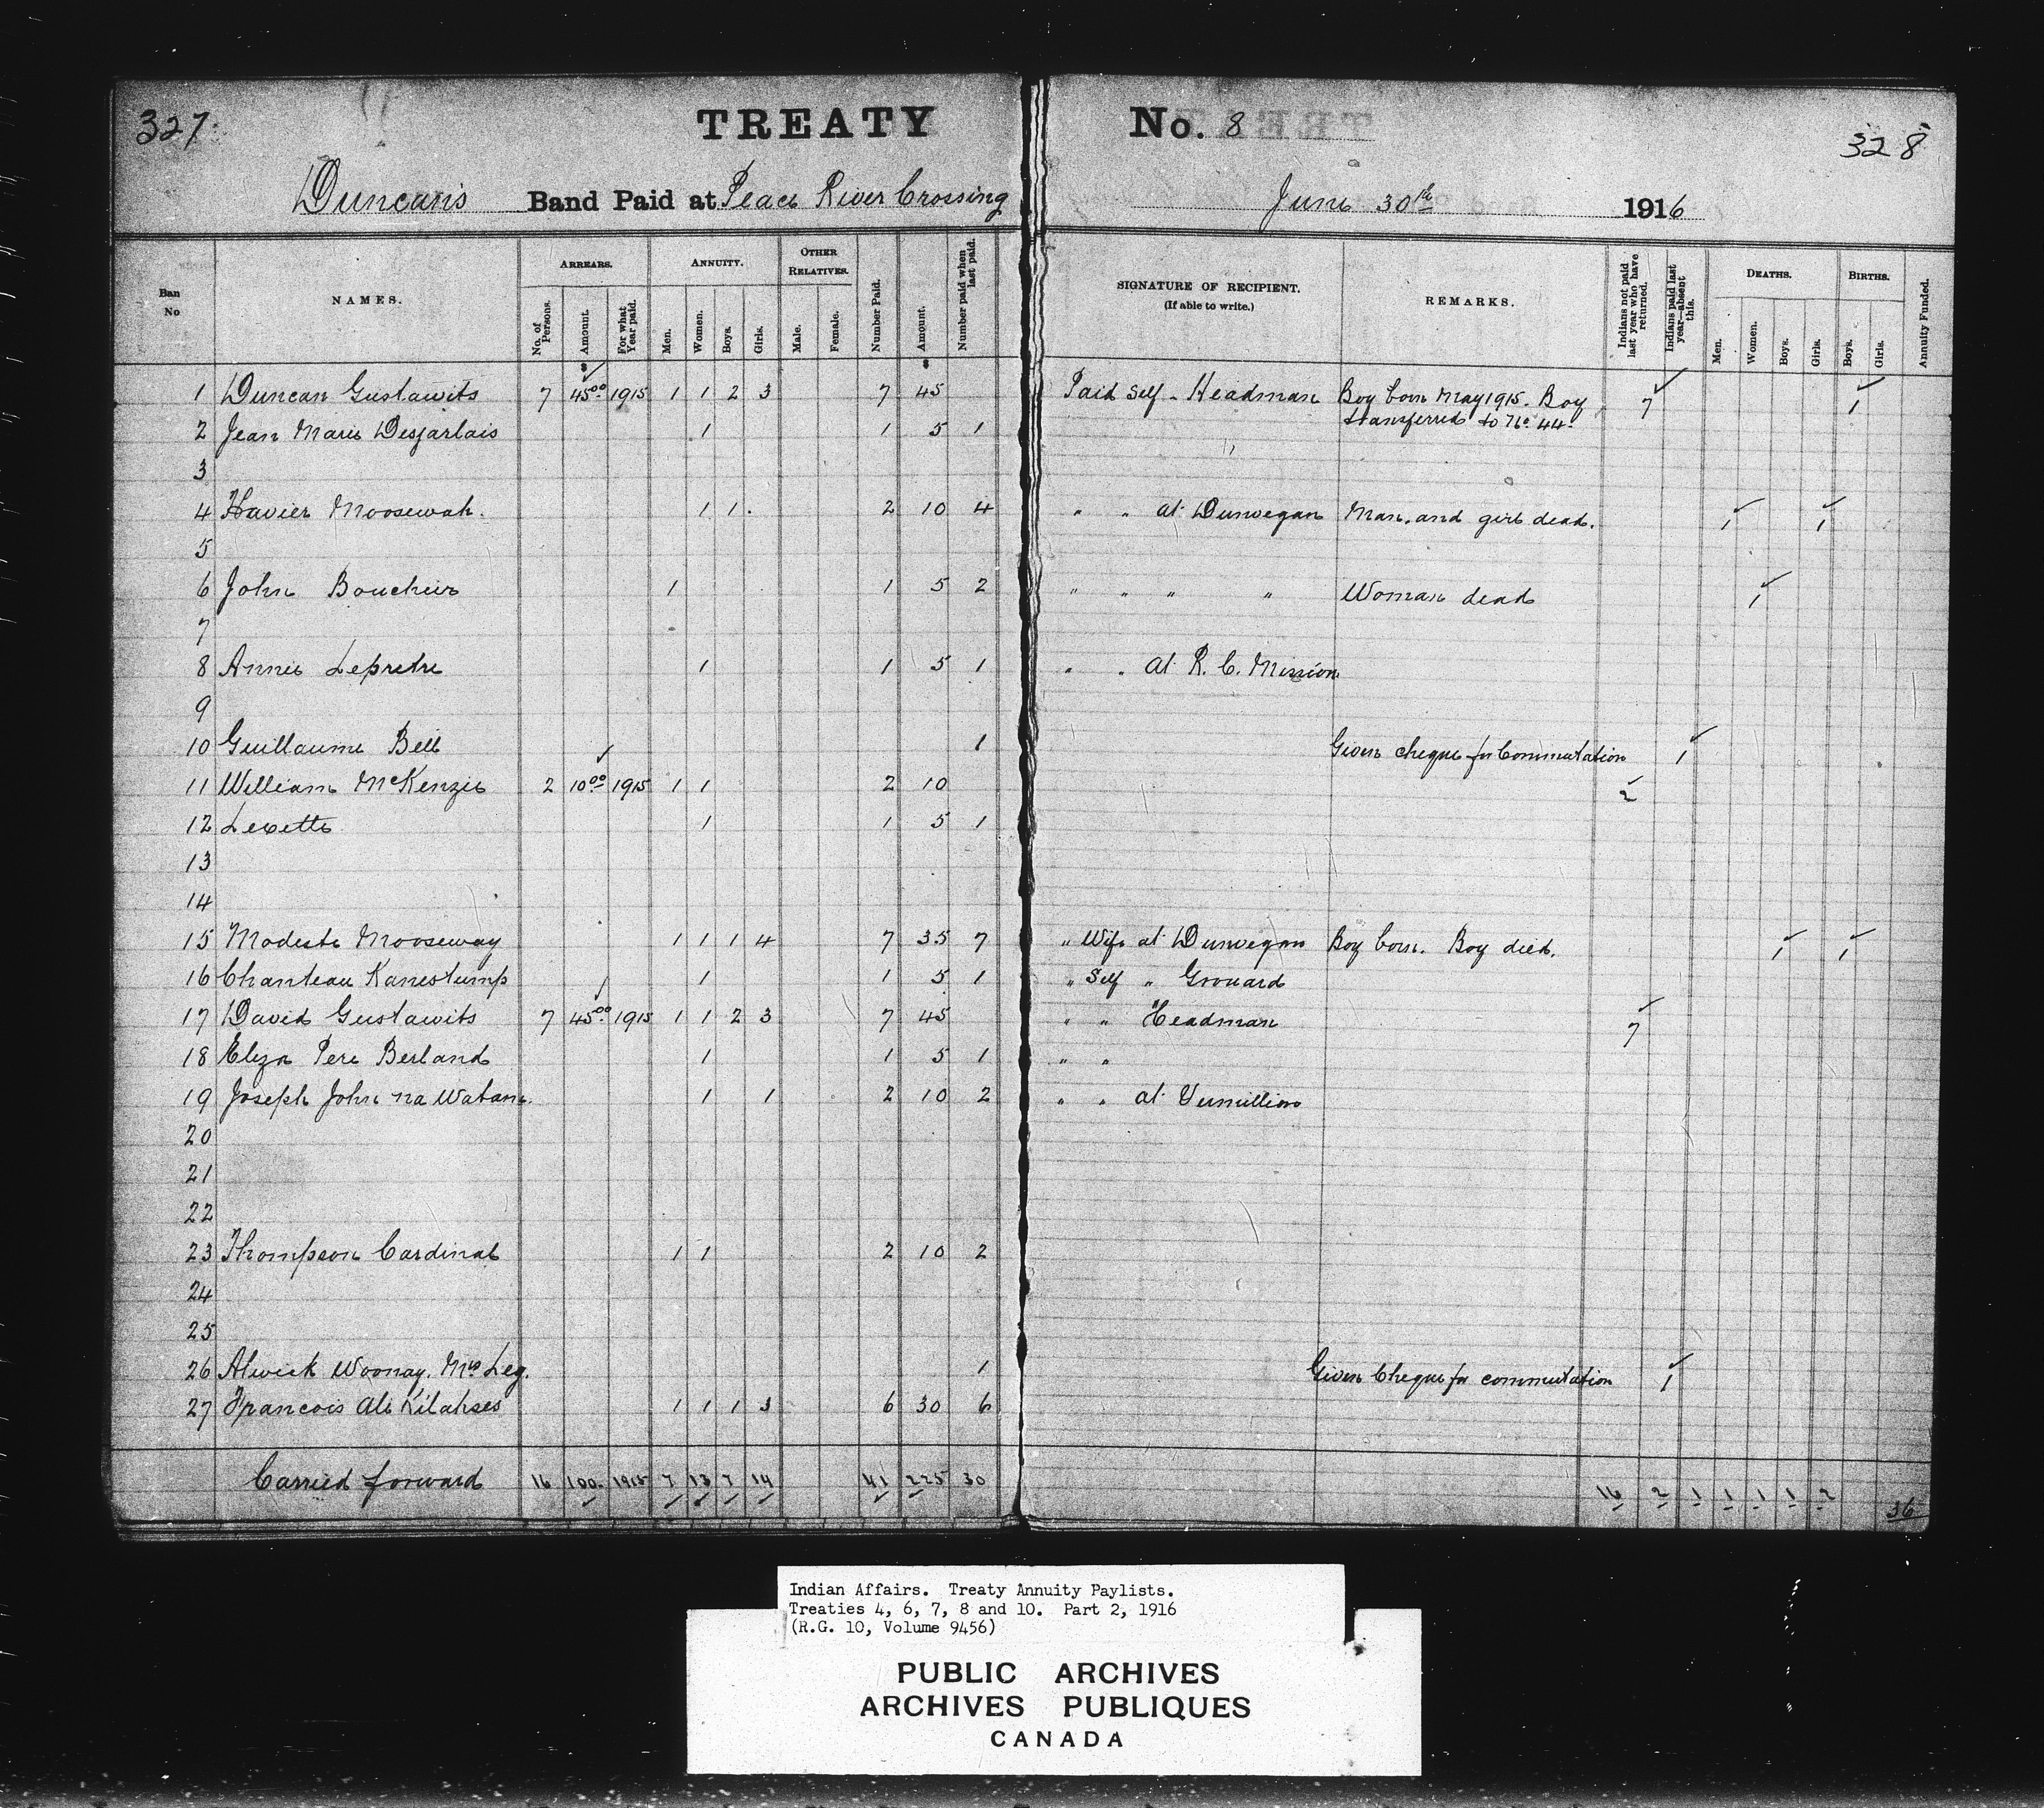 327. TREATY No. 8 328
Duncan's Band Paid at Peace River Crossing June 30th 1916
Ban No NAMES. ARREARS. ANNUITY. OTHER RELATIVES. Number Paid. Amount. Number paid when last paid. SIGNATURE OF RECIPIENT. (If able to write.) REMARKS. Indians not paid last year who have returned. Indians paid last year—absent this. DEATHS. BIRTHS. Annuity Funded.
No. of Persons. Amount. For what Year paid. Men. Women. Boys. Girls. Male. Female. Men. Women. Boys. Girls. Boys. Girls.
1 Duncan Gustawits 7 45.00 1915 1 1 2 3 7 45 Paid Self - Headman Boy born May 1915. Boy 7 1
transferred to No. 44.
2 Jean Marie Desjarlais 1 1 5 1 "
3
4 Xavier Moosewah. 1 1 2 10 4 " " at Dunvegan Man and girl dead. 1 1
5
6 John Boucheir 1 1 5 2 " " " " Woman dead 1
7
8 Annie Lepretre 1 1 5 1 " " at R. C. Mission
9
10 Guillaume Bell 1 Given cheque for Commutation 1
11 William McKenzie 2 10.00 1915 1 1 2 10 2
12 Lexette 1 1 5 1
13
14
15 Modeste Mooseway 1 1 1 4 7 35 7 " Wife at Dunvegan Boy born. Boy died. 1 1
16 Chanteau Kanestump 1 1 5 1 " Self " Grouard
17 David Gustawits 7 45.00 1915 1 1 2 3 7 45 " " Headman 7
18 Eliza Pere Berland 1 1 5 1 " "
19 Joseph John na Watam. 1 1 2 10 2 " " at Vermillion
20
21
22
23 Thompson Cardinal 1 1 2 10 2
24
25
26 Alwick Woonay. Mrs Leg. 1 Given Cheque for commutation 1
27 Francois Ali Kilahses 1 1 1 3 6 30 6
Carried forward 16 100. 1915 7 13 7 14 41 225 30 16 2 1 1 1 1 2
36
Indian Affairs. Treaty Annuity Paylists.
Treaties 4, 6, 7, 8 and 10. Part 2, 1916
(R.G. 10, Volume 9456)
PUBLIC ARCHIVES
ARCHIVES PUBLIQUES
CANADA